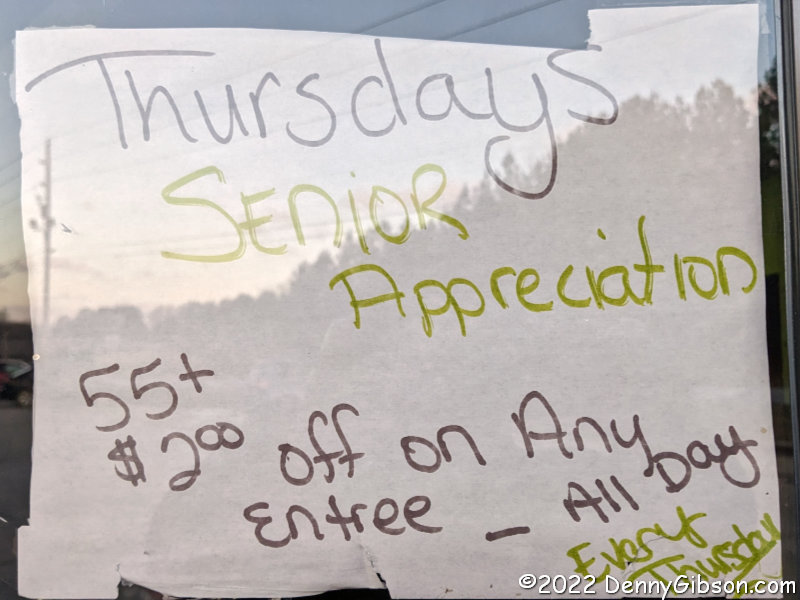 Thursdays
SENIOR
Appreciation
55+
$2.00 off on Any
Entree _ All Day
Every
Thursday
©2022 DennyGibson.com